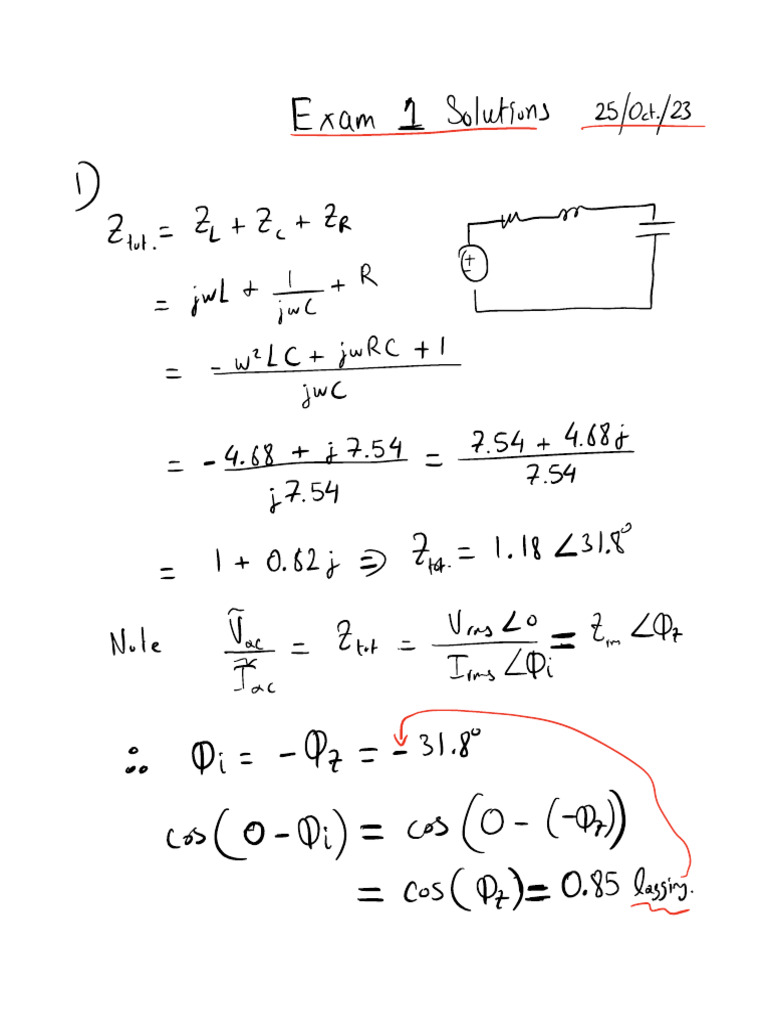 Exam 1 Solutions 25/Oct./23
1)
Z_tot. = Z_L + Z_C + Z_R
= jwL + 1/(jwC) + R
= (-w²LC + jwRC + 1)/(jwC)
= (-4.68 + j7.54)/(j7.54) = (7.54 + 4.68j)/7.54
= 1 + 0.62j ⇒ Z_tot. = 1.18 ∠31.8°
Note Ṽ_ac/Ĩ_ac = Z_tot = (V_rms ∠0)/(I_rms ∠Φ_i) = Z_m ∠Φ_z
∴ Φ_i = -Φ_z = -31.8°
cos(0 - Φ_i) = cos(0 - (-Φ_z))
= cos(Φ_z) = 0.85 lagging.
+
-